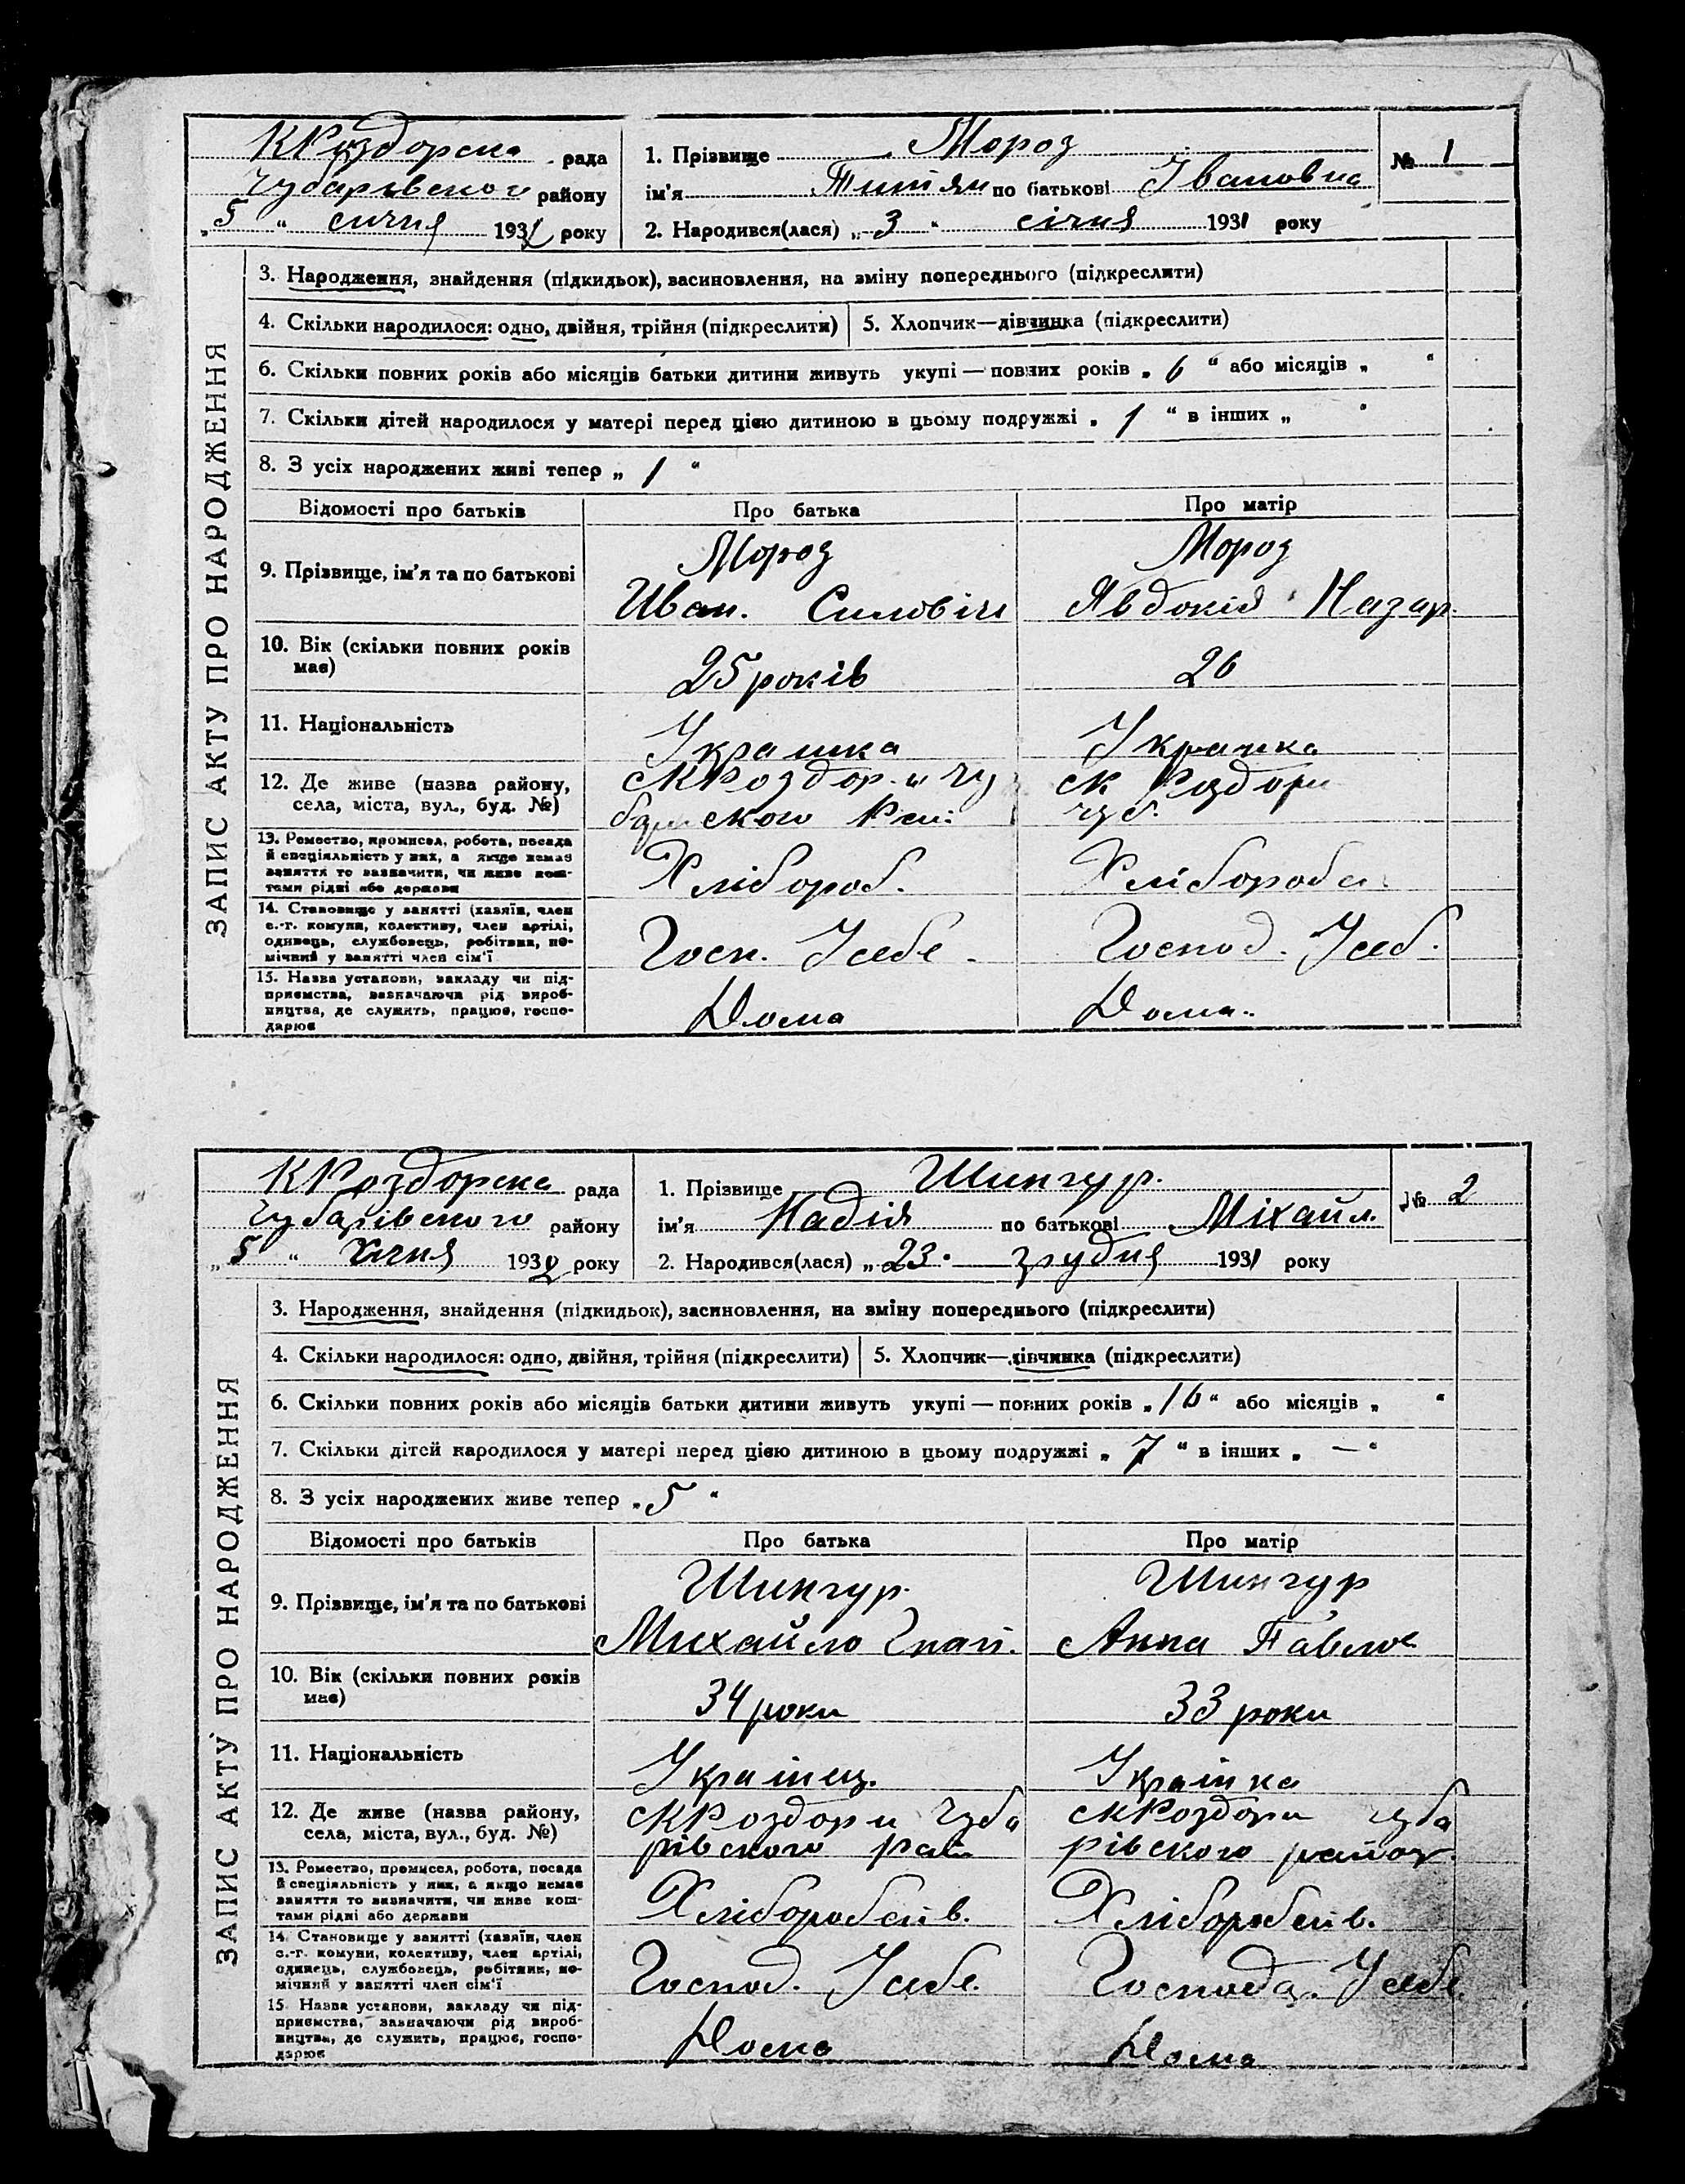 КРоздорска рада
Чубарьвского району
„5“ сичня 1932 року
1. Прізвище Мороз
ім'я Титян по батькові Івановна
2. Народився(лася) „3“ січня 1931 року
№ 1
ЗАПИС АКТУ ПРО НАРОДЖЕННЯ
3. Народження, знайдення (підкидьок), засиновлення, на зміну попереднього (підкреслити)
4. Скільки народилося: одно, двійня, трійня (підкреслити) 5. Хлопчик—дівчинка (підкреслити)
6. Скільки повних років або місяців батьки дитини живуть укупі — повних років „6“ або місяців „ “
7. Скільки дітей народилося у матері перед цією дитиною в цьому подружжі „1“ в інших „ “
8. З усіх народжених живі тепер „1“
Відомості про батьків Про батька Про матір
9. Прізвище, ім'я та по батькові
Мороз
Иван. Силовіч
Мороз
Явдокія Назар.
10. Вік (скільки повних років має)
25 років
26
11. Національність
Украинка
Украинка
12. Де живе (назва району,
села, міста, вул., буд. №)
сКРоздор. и Чу
ского
ск Роздори
чуб.
13. Ремество, промисел, робота, посада
й спеціяльність у них, а якщо немає
заняття то зазначити, чи живе кош-
тами рідні або держави
Хлібороб.
Хлібороба
14. Становище у занятті (хазяїн, член
с.-г. комуни, колективу, член артілі,
одинець, службовець, робітник, по-
мічний у занятті член сім'ї
Госп. У себе
Господ. У себ.
15. Назва установи, закладу чи під-
приємства, зазначаючи рід вироб-
ництва, де служить, працює, госпо-
дарює
Дома
Дома.
КРоздорска рада
Чубарівского району
„5“ січня 1932 року
1. Прізвище Шингур.
ім'я Надія по батькові Міхайл.
2. Народився(лася) „23“ грудня 1931 року
№ 2
ЗАПИС АКТУ ПРО НАРОДЖЕННЯ
3. Народження, знайдення (підкидьок), засиновлення, на зміну попереднього (підкреслити)
4. Скільки народилося: одно, двійня, трійня (підкреслити) 5. Хлопчик—дівчинка (підкреслити)
6. Скільки повних років або місяців батьки дитини живуть укупі — повних років „16“ або місяців „ “
7. Скільки дітей народилося у матері перед цією дитиною в цьому подружжі „7“ в інших „—“
8. З усіх народжених живе тепер „5“
Відомості про батьків Про батька Про матір
9. Прізвище, ім'я та по батькові
Шингур.
Михайло
Шингур
Анна Павлов
10. Вік (скільки повних років має)
34 роки
33 роки
11. Національність
Україиец.
Українка
12. Де живе (назва району,
села, міста, вул., буд. №)
сКРоздори Чуба
рівского рай
сКРоздори чуба
рівского район.
13. Ремество, промисел, робота, посада
й спеціяльність у них, а якщо немає
заняття то зазначити, чи живе кош-
тами рідні або держави
14. Становище у занятті (хазяїн, член
с.-г. комуни, колективу, член артілі,
одинець, службовець, робітник, по-
мічний у занятті член сім'ї
Господ. У себе.
Господа. У себе.
15. Назва установи, закладу чи під-
приємства, зазначаючи рід вироб-
ництва, де служить, працює, госпо-
дарює
Дома
Дома